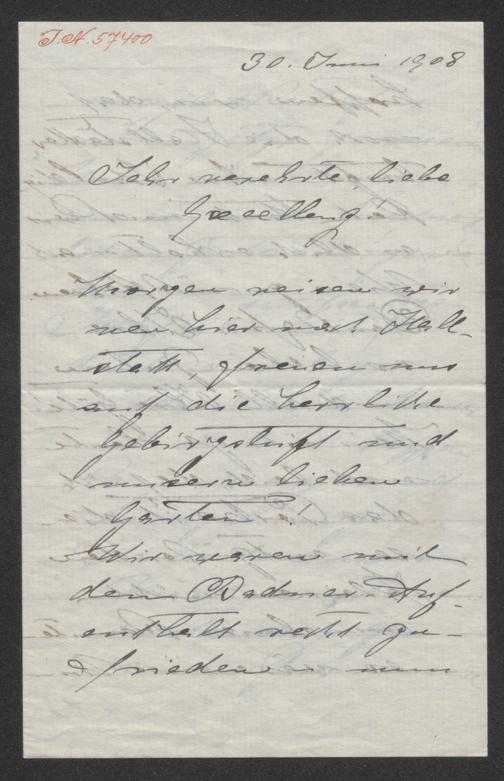 I.N. 57400
30. Juni 1908
Sehr verehrte, liebe
Excellenz!
Morgen reisen wir
von hier nach Hall-
statt, freuen uns
auf die herrliche
Gebirgsluft und
unsern lieben
Garten!
Wir waren mit
dem Badner-Auf-
enthalt recht zu-
frieden nun